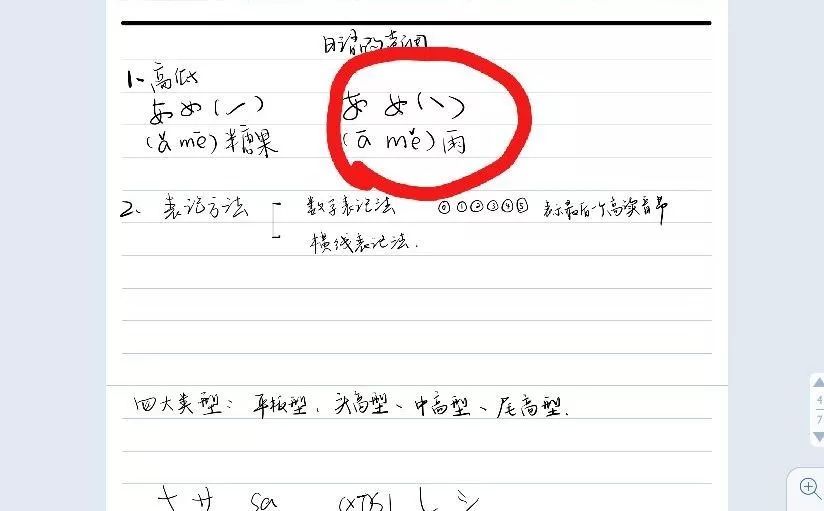 日语的声调
1、高低
あめ(⟋) あめ(⟍)
(ǎ mē) 糖果 (ā mě) 雨
2、表记方法 数字表记法 ⓪①②③④⑤ 表示最后一个高读音节
横线表记法.
四大类型: 平板型、头高型、中高型、尾高型.
ナ サ sa し シ
4
7